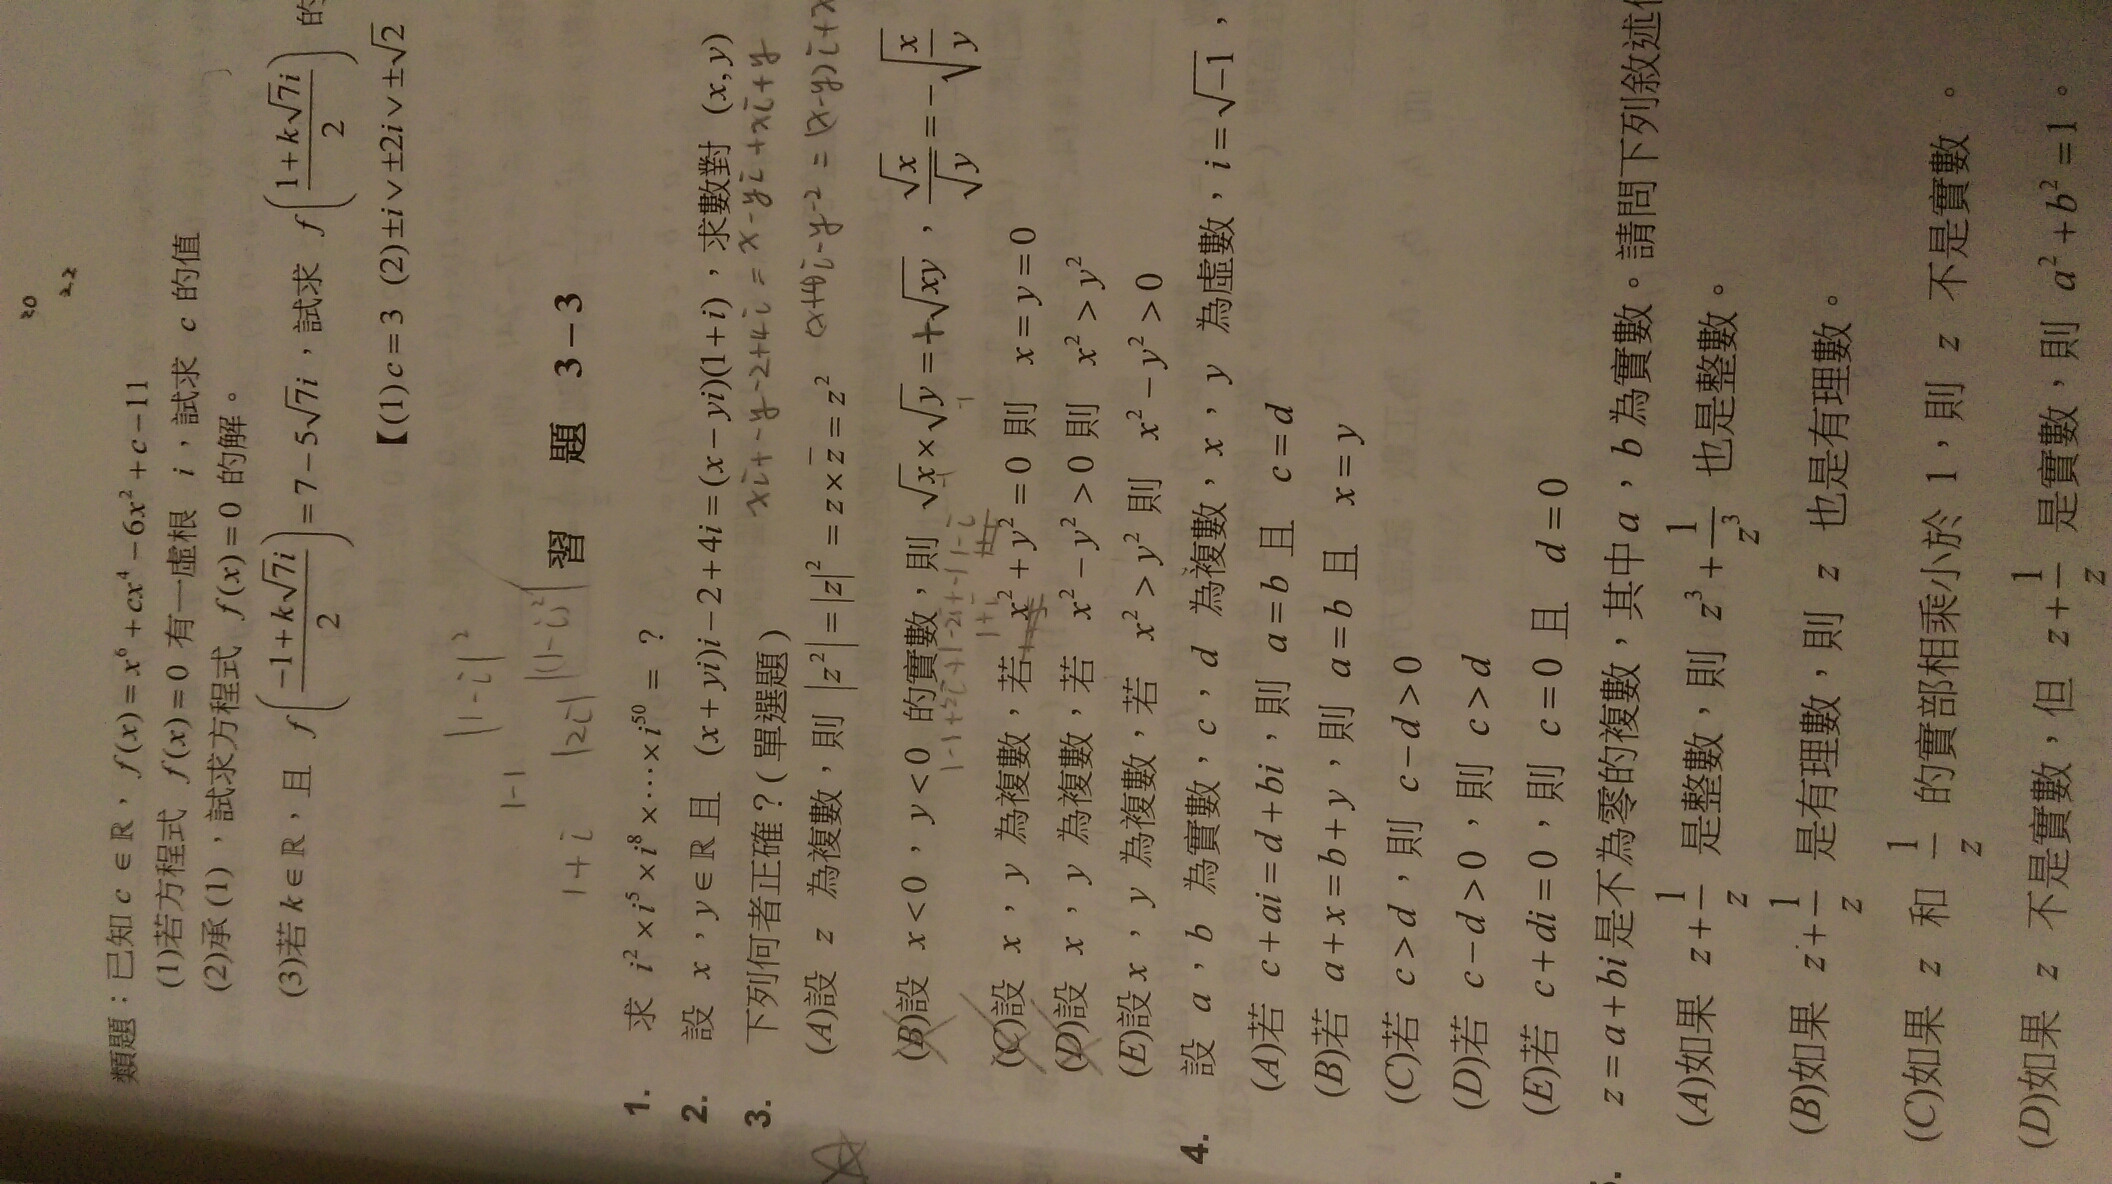 20
22
類題：已知 c ∈ ℝ，f(x) = x⁶ + cx⁴ − 6x² + c − 11
(1)若方程式 f(x) = 0 有一虛根 i，試求 c 的值
(2)承(1)，試求方程式 f(x) = 0 的解。
(3)若 k ∈ ℝ，且 f((−1 + k√7i)/2) = 7 − 5√7i，試求 f((1 + k√7i)/2) 的
【(1)c = 3 (2)±i ∨ ±2i ∨ ±√2
|1-i|²
1-1
1+i |2i| |(1-i)²|
習 題 3－3
1. 求 i² × i⁵ × i⁸ × ⋯ × i⁵⁰ = ？
2. 設 x，y ∈ ℝ 且 (x + yi)i − 2 + 4i = (x − yi)(1 + i)，求數對 (x, y)
xi+-y-2+4i = x-yi+xi+y
3. 下列何者正確？(單選題)
(x+4)i-y-2 = (x-y)i+x
(A)設 z 為複數，則 |z²| = |z|² = z × z̄ = z²
(B)設 x < 0，y < 0 的實數，則 √x × √y = +√xy，√x/√y = −√(x/y)
(C)設 x，y 為複數，若 x² + y² = 0 則 x = y = 0
(D)設 x，y 為複數，若 x² − y² > 0 則 x² > y²
(E)設 x，y 為複數，若 x² > y² 則 x² − y² > 0
4. 設 a，b 為實數，c，d 為複數，x，y 為虛數，i = √−1，
(A)若 c + ai = d + bi，則 a = b 且 c = d
(B)若 a + x = b + y，則 a = b 且 x = y
(C)若 c > d，則 c − d > 0
(D)若 c − d > 0，則 c > d
(E)若 c + di = 0，則 c = 0 且 d = 0
z = a + bi 是不為零的複數，其中 a，b 為實數。請問下列敘述
(A)如果 z + 1/z 是整數，則 z³ + 1/z³ 也是整數。
(B)如果 z + 1/z 是有理數，則 z 也是有理數。
(C)如果 z 和 1/z 的實部相乘小於 1，則 z 不是實數。
(D)如果 z 不是實數，但 z + 1/z 是實數，則 a² + b² = 1。